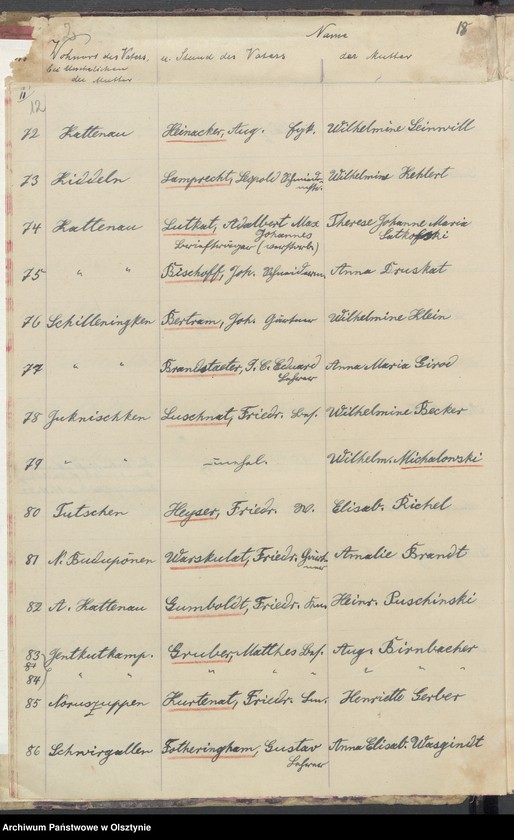 Name 18
Wohnort des Vaters, u. Stand des Vaters der Mutter
bei Unehelichen
der Mutter
II
12
72 Kattenau Heinacker, Aug. Wilhelmine Leinwill
73 Kiddeln Lamprecht, Leopold Schmiede- Wilhelmine Kehlert
mstr.
74 Kattenau Lutkat, Adalbert Max Therese Johanne Maria
Johannes
Briefträger (verstorb.)
75 " " Bischoff, Joh. Anna Druskat
76 Schilleningken Bertram, Joh. Gärtner Wilhelmine Klein
77 " " Brandstaeter, J. C. Eduard Anna Maria Girod
Lehrer
78 Juknischken Luschnat, Friedr. Wilhelmine Becker
79 " " unehel. Wilhelm. Michalowski
80 Tutschen Heyser, Friedr. Elisab. Richel
81 N. Budupönen Warskulat, Friedr. Amalie Brandt
82 A. Kattenau Gumboldt, Friedr. Heinr. Puschinski
83 Jentkutkamp. Gruber, Matthes Aug. Birnbacher
84 " " " " " " "
85 Noruszuppen Kurtenat, Friedr. Henriette Gerber
86 Schwirgallen Fotheringham, Gustav Anna Elisab. Wasgindt
Lehrer
Archiwum Państwowe w Olsztynie